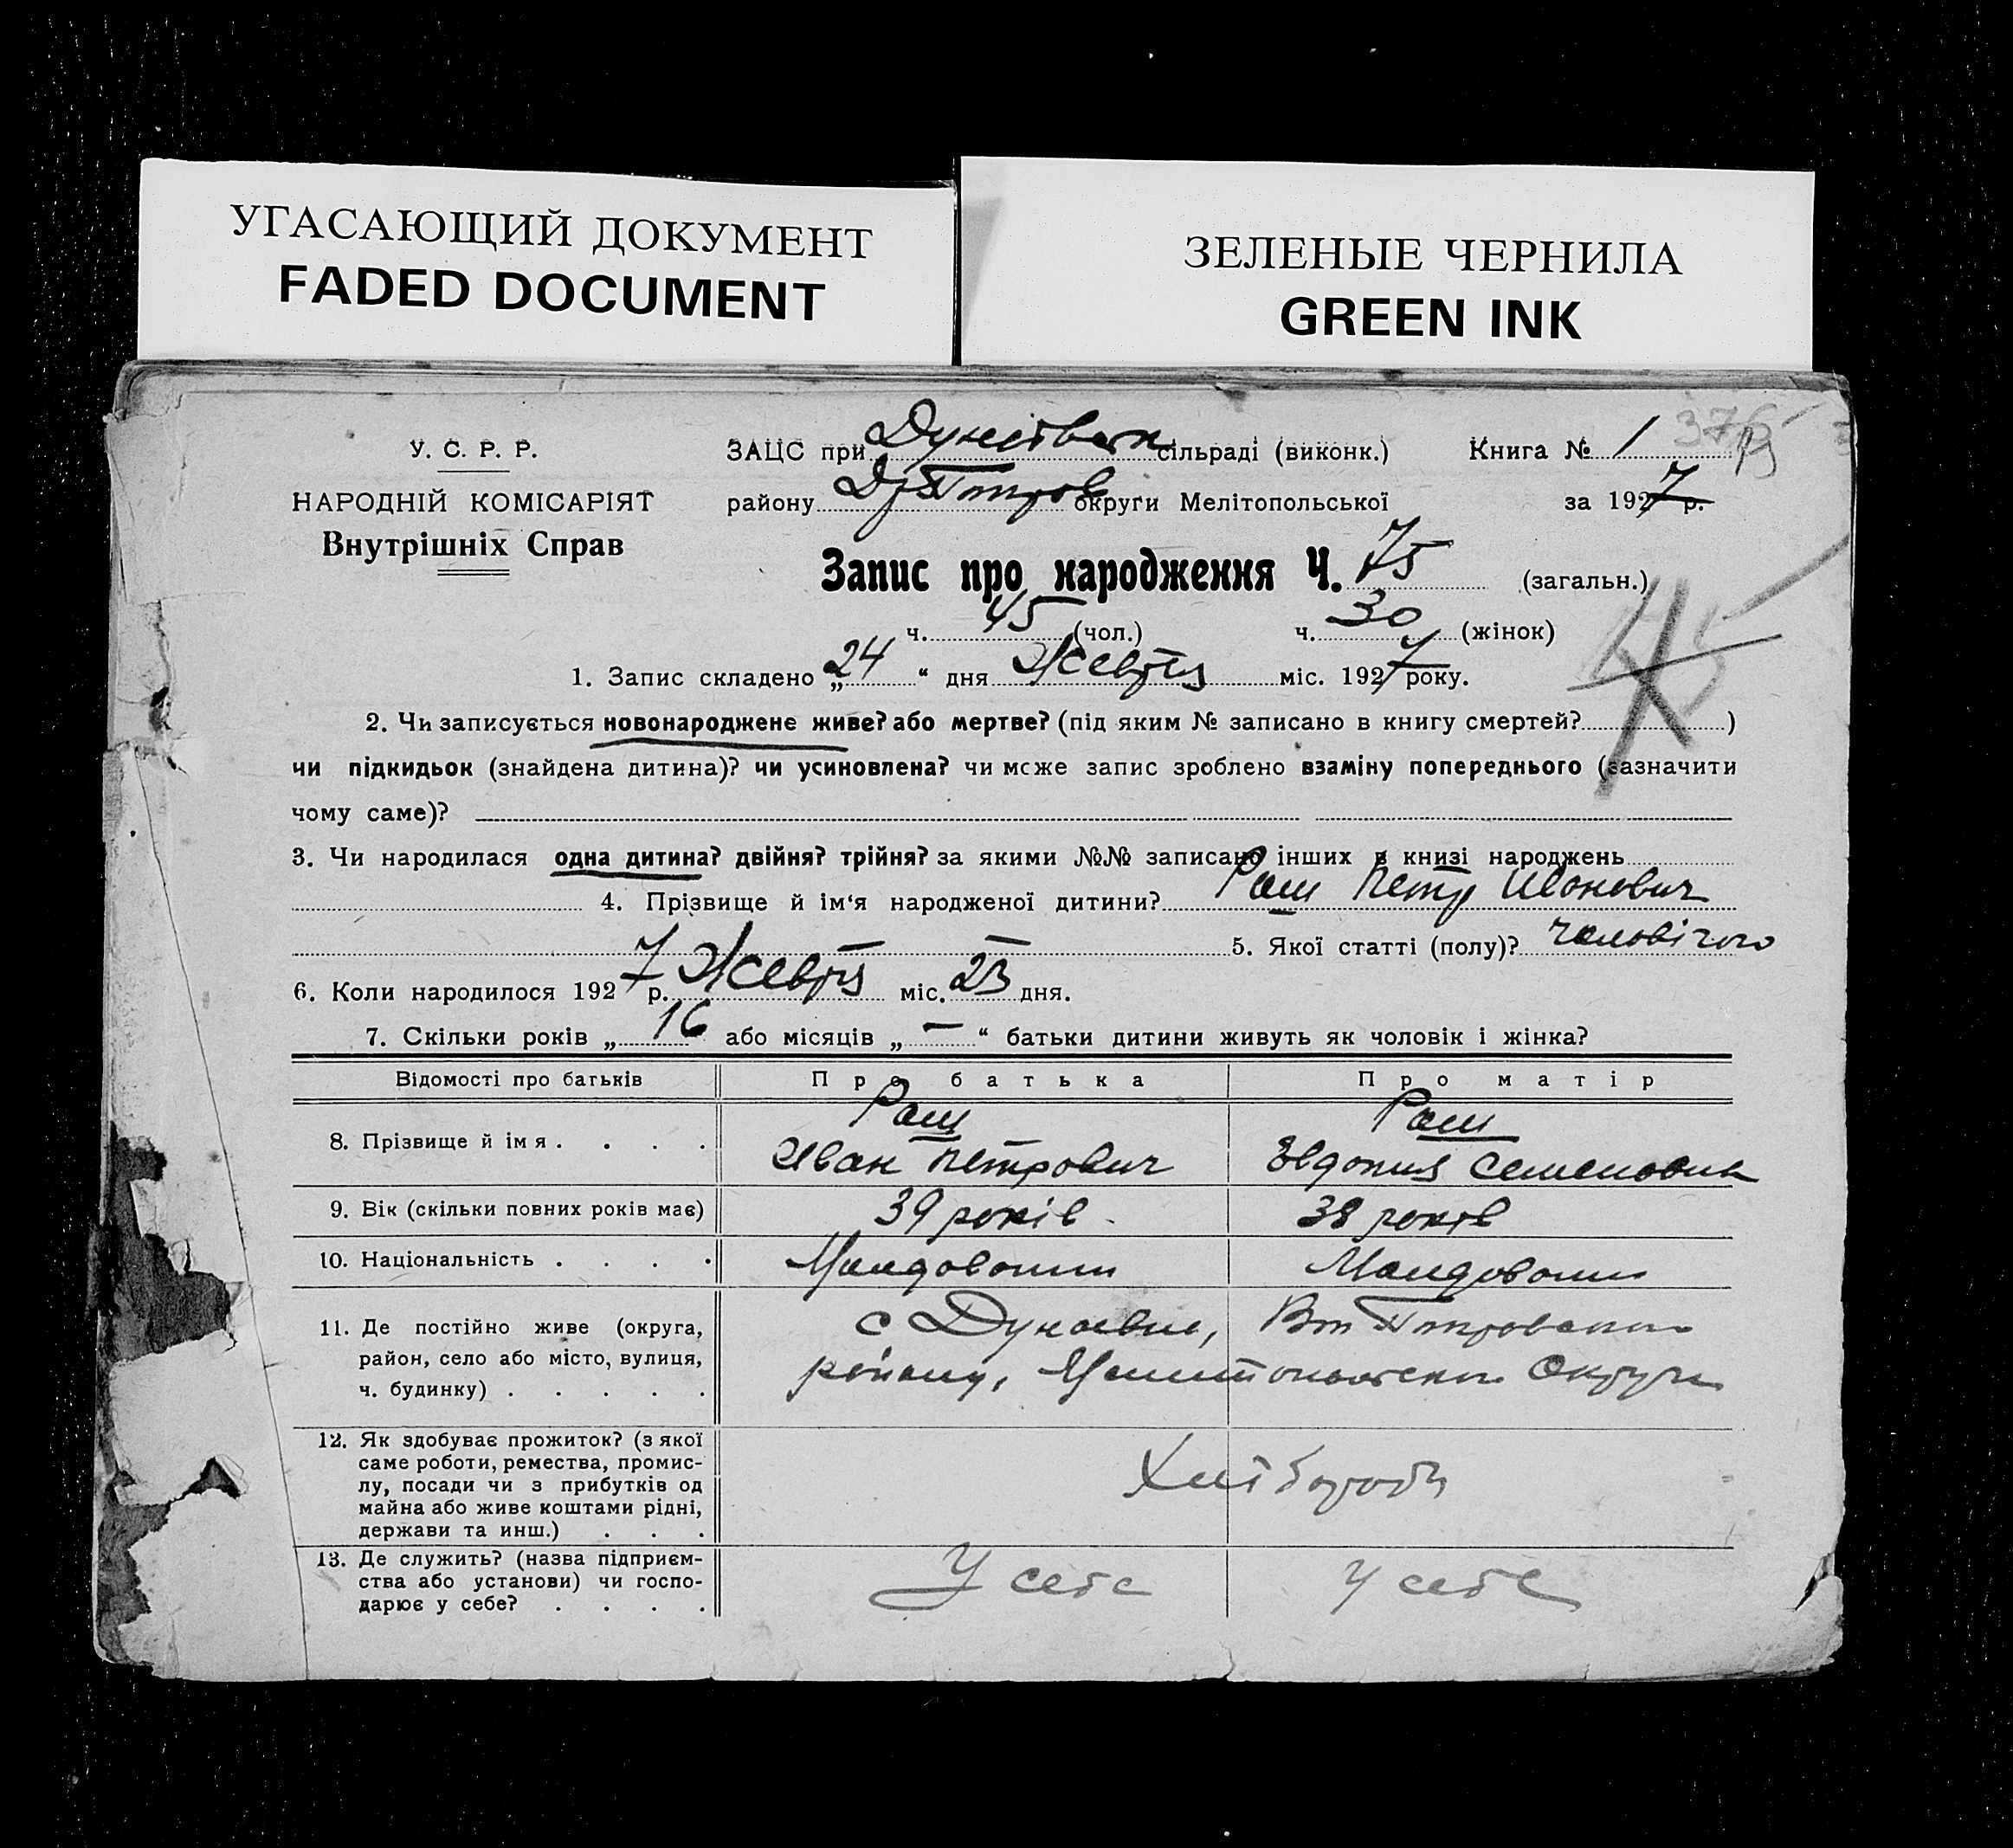 УГАСАЮЩИЙ ДОКУМЕНТ
FADED DOCUMENT
ЗЕЛЕНЫЕ ЧЕРНИЛА
GREEN INK
У. С. Р. Р.
НАРОДНІЙ КОМІСАРІЯТ
Внутрішніх Справ
ЗАЦС при сільраді (виконк.)
району округи Мелітопольської
Книга № 1
за 1927 р.
Запис про народження Ч. 75 (загальн.)
ч. 45 (чол.) ч. 30 (жінок)
45
1. Запис складено „24“ дня Жовтня міс. 1927 року.
2. Чи записується новонароджене живе? або мертве? (під яким № записано в книгу смертей? )
чи підкидьок (знайдена дитина)? чи усиновлена? чи може запис зроблено взаміну попереднього (зазначити
чому саме)?
3. Чи народилася одна дитина? двійня? трійня? за якими №№ записано інших в книзі народжень
4. Прізвище й ім‘я народженої дитини? Раш Петр Иванович
5. Якої статті (полу)? чоловічого
6. Коли народилося 1927 р. Жовтня міс. 23 дня.
7. Скільки років „16 або місяців „—“ батьки дитини живуть як чоловік і жінка?
Відомості про батьків Про батька Про матір
8. Прізвище й імя . . . . Раш Раш
Иван Петрович Евдокия
9. Вік (скільки повних років має) 39 років 38 років
10. Національність . . . .
11. Де постійно живе (округа, с Дунаевке,
район, село або місто, вулиця, району, Мелитопольскои Округи
ч. будинку) . . . . .
12. Як здобуває прожиток? (з якої
саме роботи, ремества, промис-
лу, посади чи з прибутків од
майна або живе коштами рідні,
держави та инш.) . . .
Хлібороби
13. Де служить? (назва підприєм-
ства або установи) чи госпо-
дарює у себе? . . . .
У себе У себе